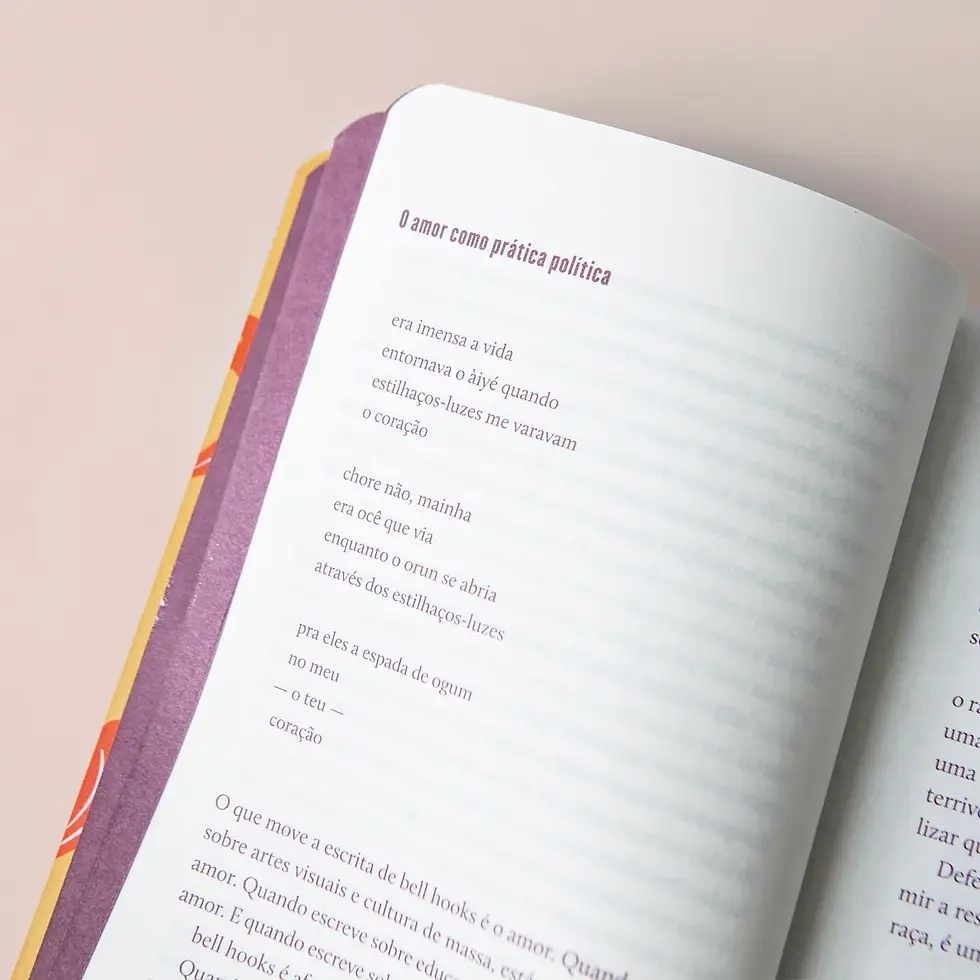 O amor como prática política
era imensa a vida
entornava o àiyé quando
estilhaços-luzes me varavam
o coração
chore não, mainha
era ocê que via
enquanto o orun se abria
através dos estilhaços-luzes
pra eles a espada de ogum
no meu
— o teu —
coração
O que move a escrita de bell hooks é o amor. Quando
sobre artes visuais e cultura de massa, está
amor. Quando escreve sobre
amor. E quando escreve
bell hooks é
o
uma
uma
mir a
raça, é